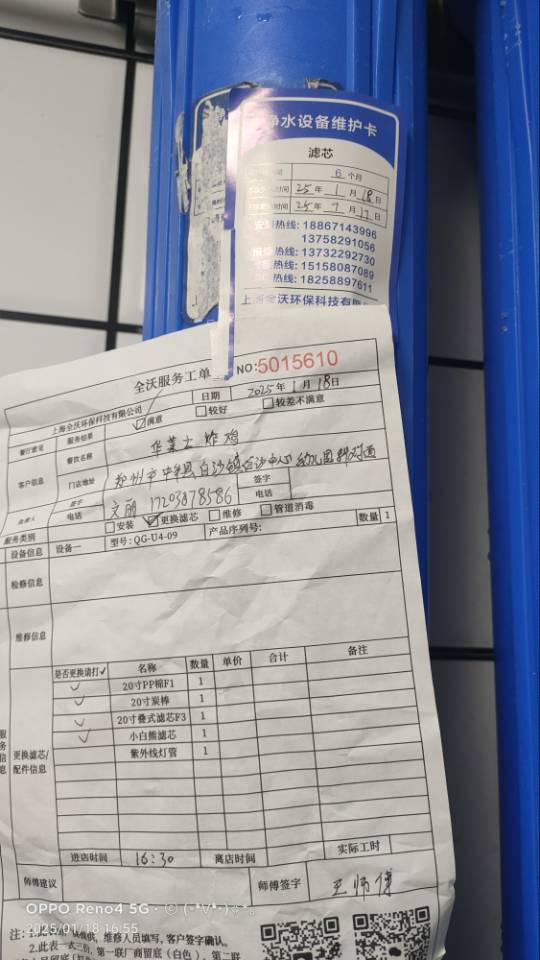 净水设备维护卡
滤芯
6 个月
时间 25 年 1 月 18 日
时间 25 年 7 月 17 日
热线: 18867143996
13758291056
热线: 13732292730
热线: 15158087089
热线: 18258897611
上海全沃环保科技有限
全沃服务工单 NO:5015610
上海全沃环保科技有限公司 日期 2025 年 1 月 18 日
餐厅意见 服务结果 ☑满意 □较好 □较差不满意
客户信息 餐饮名称 华莱士炸鸡
门店地址 郑州市中牟县白沙镇白沙中心幼儿园斜对面
签字 文丽 签字
电话 17203878586 电话
服务类别 □安装 ☑更换滤芯 □维修 □管道消毒
设备信息 设备一 型号: QG-U4-09 产品序列号: 数量 1
检修信息
维修信息
服务信息 更换滤芯/配件信息
是否更换请打√ 名称 数量 单价 合计 备注
✓ 20寸PP棉F1 1
✓ 20寸炭棒 1
✓ 20寸叠式滤芯F3 1
✓ 小白熊滤芯 1
紫外线灯管 1
进店时间 16:30 离店时间 实际工时
师傅建议 师傅签字 王师傅
OPPO Reno4 5G
2025/01/18 16:55
维修人员填写，客户签字确认。
2.此表一式三份，第一联厂商留底（白色），第二联